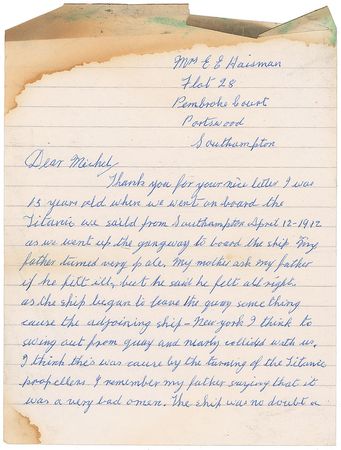 Mrs E E Haisman
Flat 28
Pembroke Court
Portswood
Southampton
Dear Michel,
Thank you for your nice letter I was
15 years old when we went on board the
Titanic we saild from Southampton April 12-1912
as we went up the gangway to board the ship. My
father turned very pale. My mother ask my father
if he fellt ill, but he said he felt all right.
as the ship began to leave the quay some thing
cause the adjoining ship - New york I think to
swing out from quay and nearly collided with us.
I think this was cause by the turning of the Titanic
propellers I remember my father saying that it
was a very bad omen. The ship was no doubt a